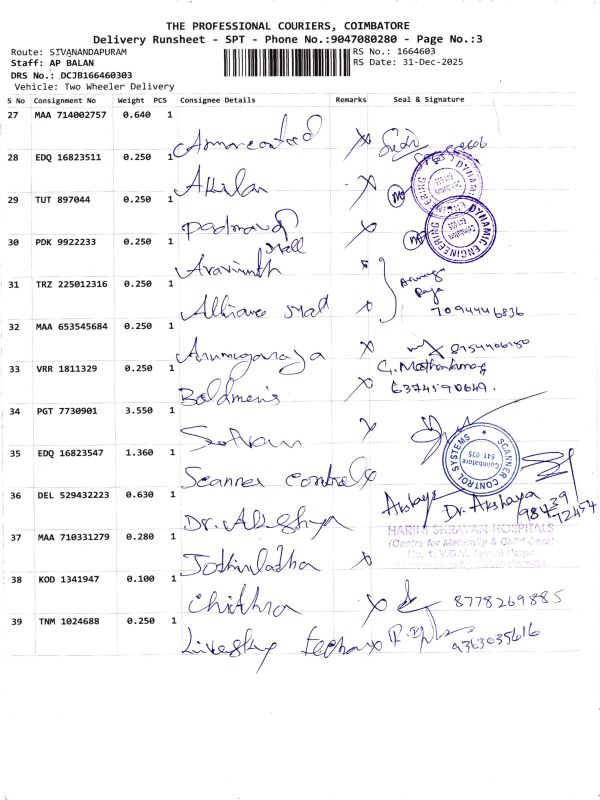 THE PROFESSIONAL COURIERS, COIMBATORE
Delivery Runsheet - SPT - Phone No.:9047080280 - Page No.:3
Route: SIVANANDAPURAM
RS No.: 1664603
Staff: AP BALAN
RS Date: 31-Dec-2025
DRS No.: DCJB166460303
Vehicle: Two Wheeler Delivery
S No Consignment No Weight PCS Consignee Details Remarks Seal & Signature
27 MAA 714002757 0.640 1
28 EDQ 16823511 0.250 1 Akilan
DYNAMIC ENGINEERING
Coimbatore
29 TUT 897044 0.250 1
Mall
DYNAMIC ENGINEERING
Coimbatore
30 PDK 9922233 0.250 1 Aravinth
31 TRZ 225012316 0.250 1 Alliance Mall
7094446836
32 MAA 653545684 0.250 1 Arumugaraja
8754406150
33 VRR 1811329 0.250 1 Baldmens
6374590649.
34 PGT 7730901 3.550 1
35 EDQ 16823547 1.360 1 Scanner control
SCANNER CONTROL SYSTEMS
Coimbatore
641 035
36 DEL 529432223 0.630 1 Dr. Akshya
Akshaya Dr. Akshaya
98439
72454
HARINI SHRAVAN HOSPITALS
(Centre for Maternity & Child Care)
37 MAA 710331279 0.280 1
38 KOD 1341947 0.100 1 Chithra 8778269885
39 TNM 1024688 0.250 1
9363035616